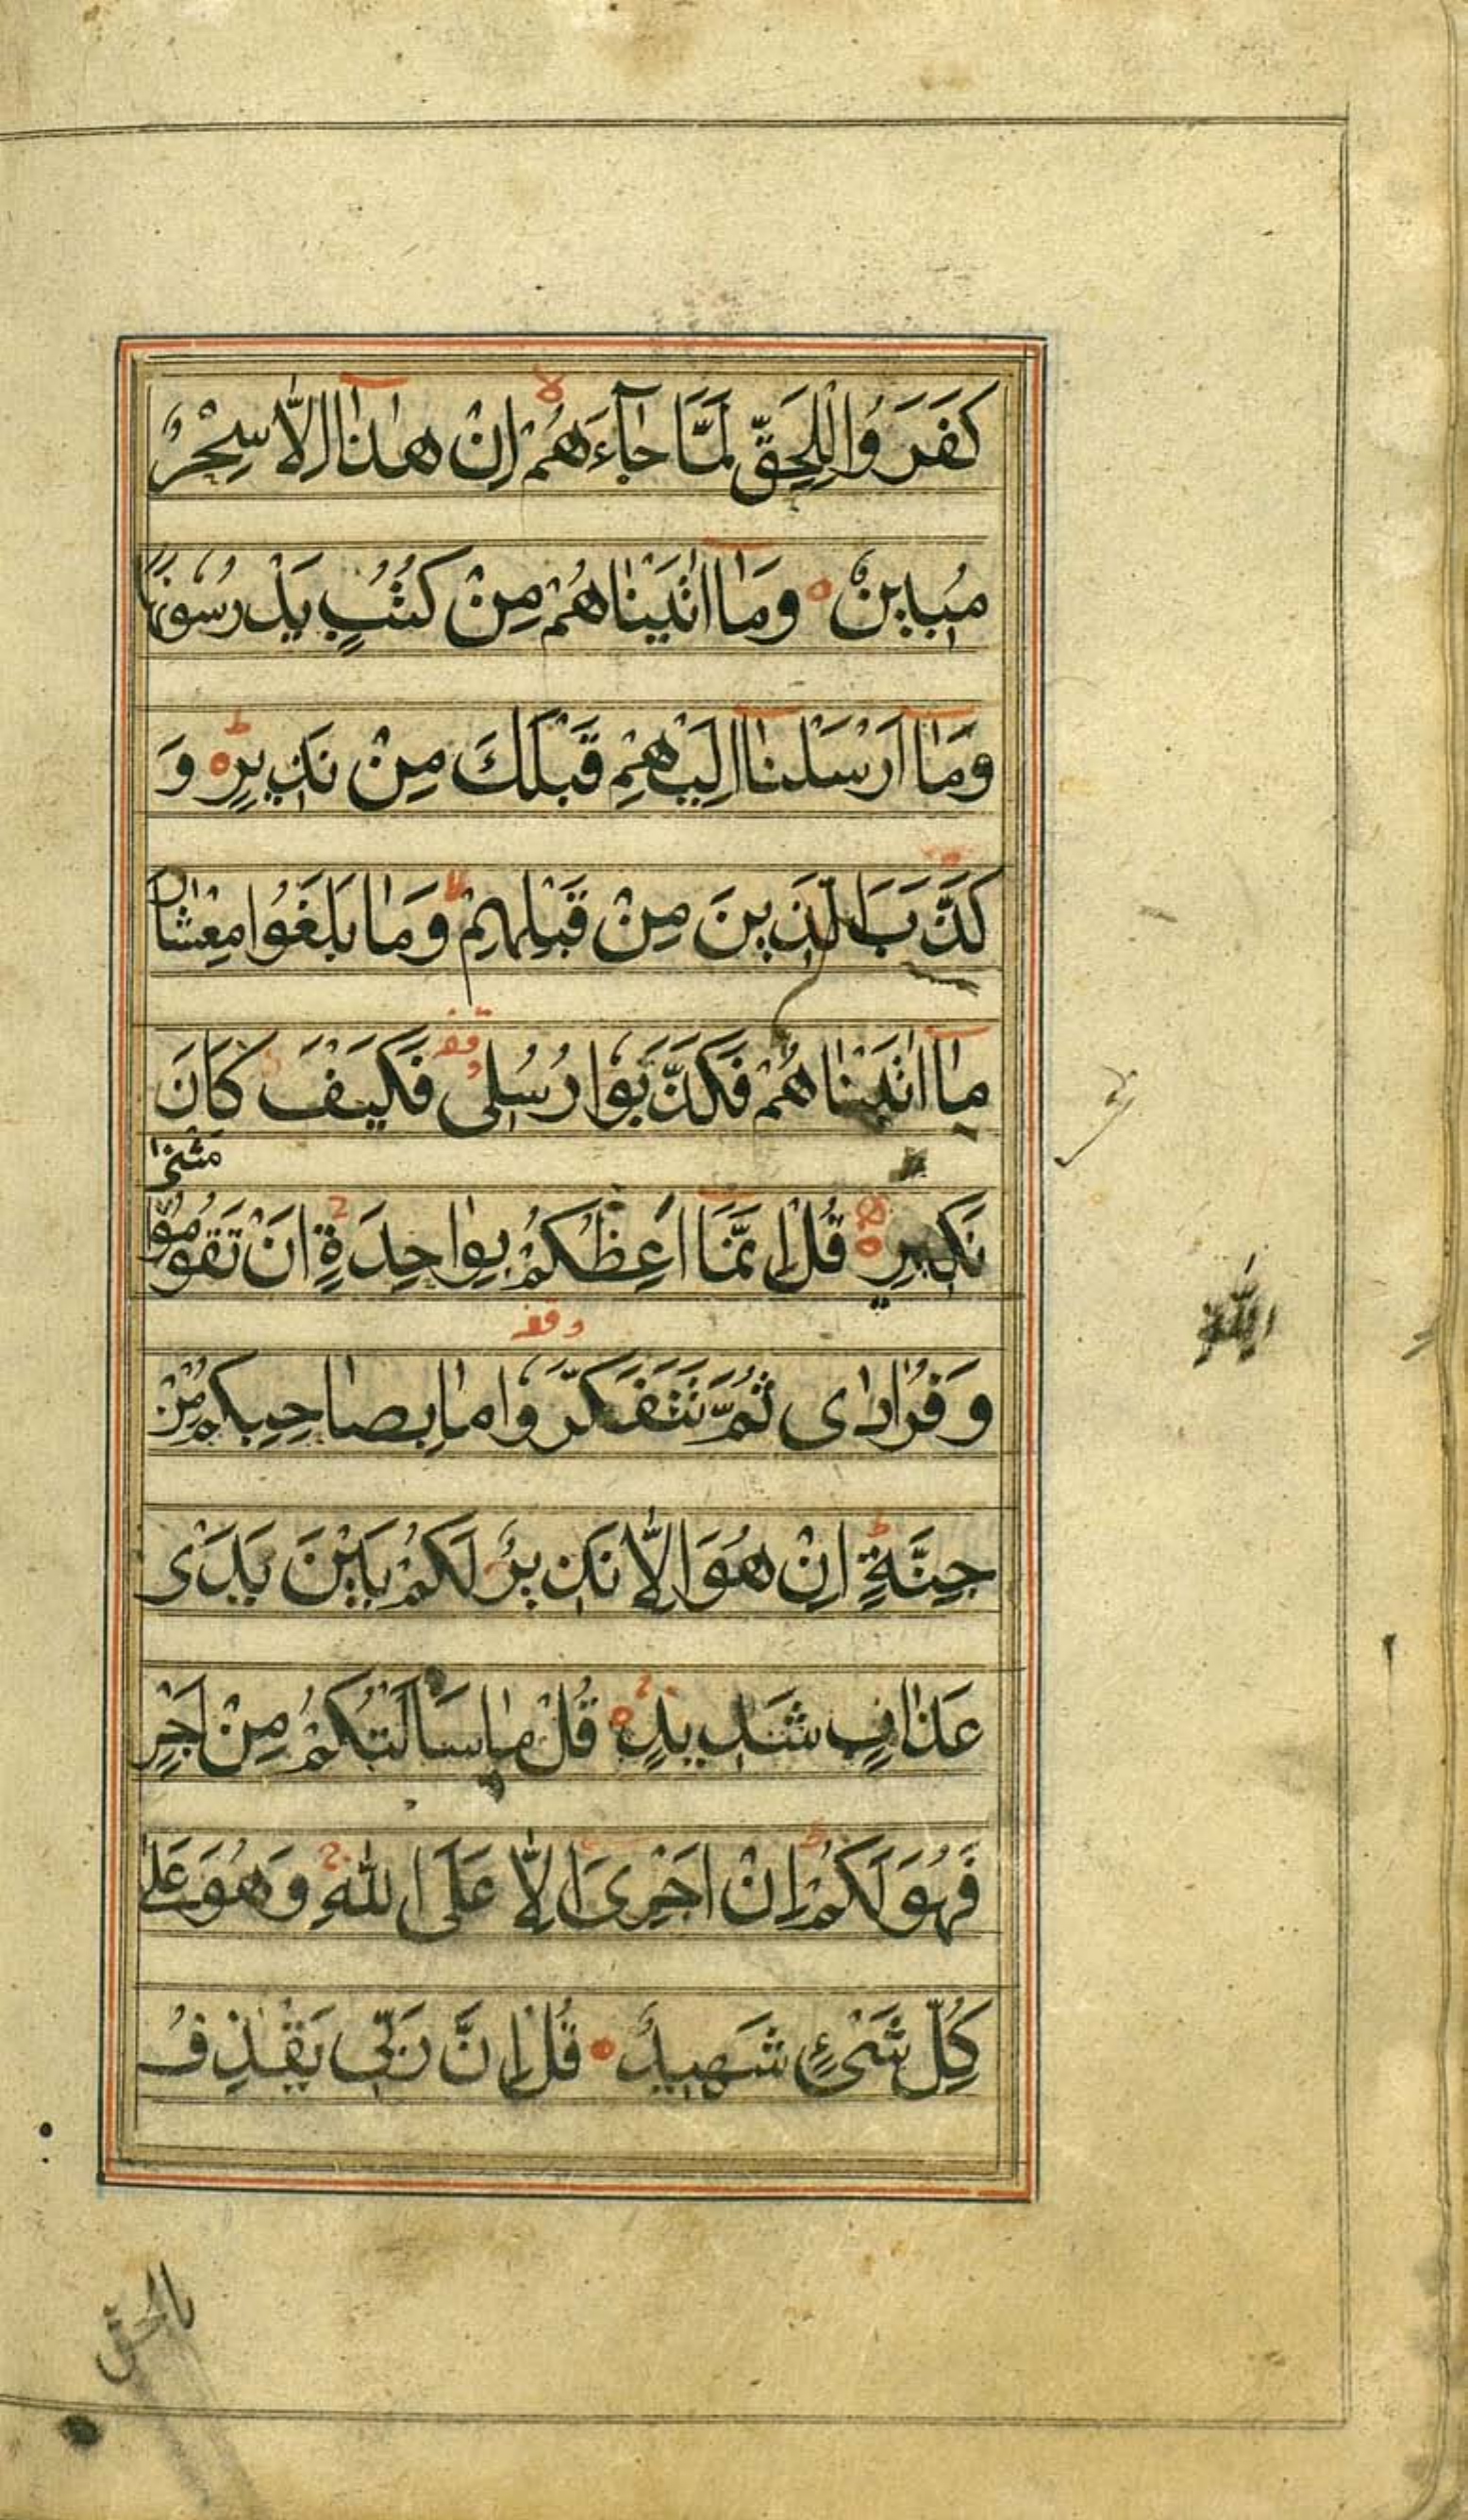 كَفَرُوا لِلْحَقِّ لَمَّا جَآءَهُمْ اِنْ هٰذَا اِلَّا سِحْرٌ
مُبِينٌ وَمَا اٰتَيْنَاهُمْ مِنْ كُتُبٍ يَدْرُسُونَهَا
وَمَا اَرْسَلْنَا اِلَيْهِمْ قَبْلَكَ مِنْ نَذِيرٍ ط وَ
كَذَّبَ الَّذِينَ مِنْ قَبْلِهِمْ لا وَمَا بَلَغُوا مِعْشَارَ
مَا اٰتَيْنَاهُمْ فَكَذَّبُوا رُسُلِى قف فَكَيْفَ كَانَ
نَكِيرِ قُلْ اِنَّمَا اَعِظُكُمْ بِوَاحِدَةٍ اَنْ تَقُومُوا لِلّٰهِ مَثْنٰى
وَفُرَادٰى ثُمَّ تَتَفَكَّرُوا وقف مَا بِصَاحِبِكُمْ مِنْ
جِنَّةٍ ط اِنْ هُوَ اِلَّا نَذِيرٌ لَكُمْ بَيْنَ يَدَىْ
عَذَابٍ شَدِيدٍ قُلْ مَا سَاَلْتُكُمْ مِنْ اَجْرٍ
فَهُوَ لَكُمْ ط اِنْ اَجْرِىَ اِلَّا عَلَى اللّٰهِ وَهُوَ عَلٰى
كُلِّ شَىْءٍ شَهِيدٌ قُلْ اِنَّ رَبِّى يَقْذِفُ
بالحق